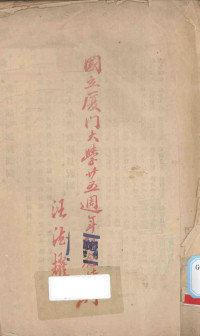 國立廈門大學廿五週年
汪德耀